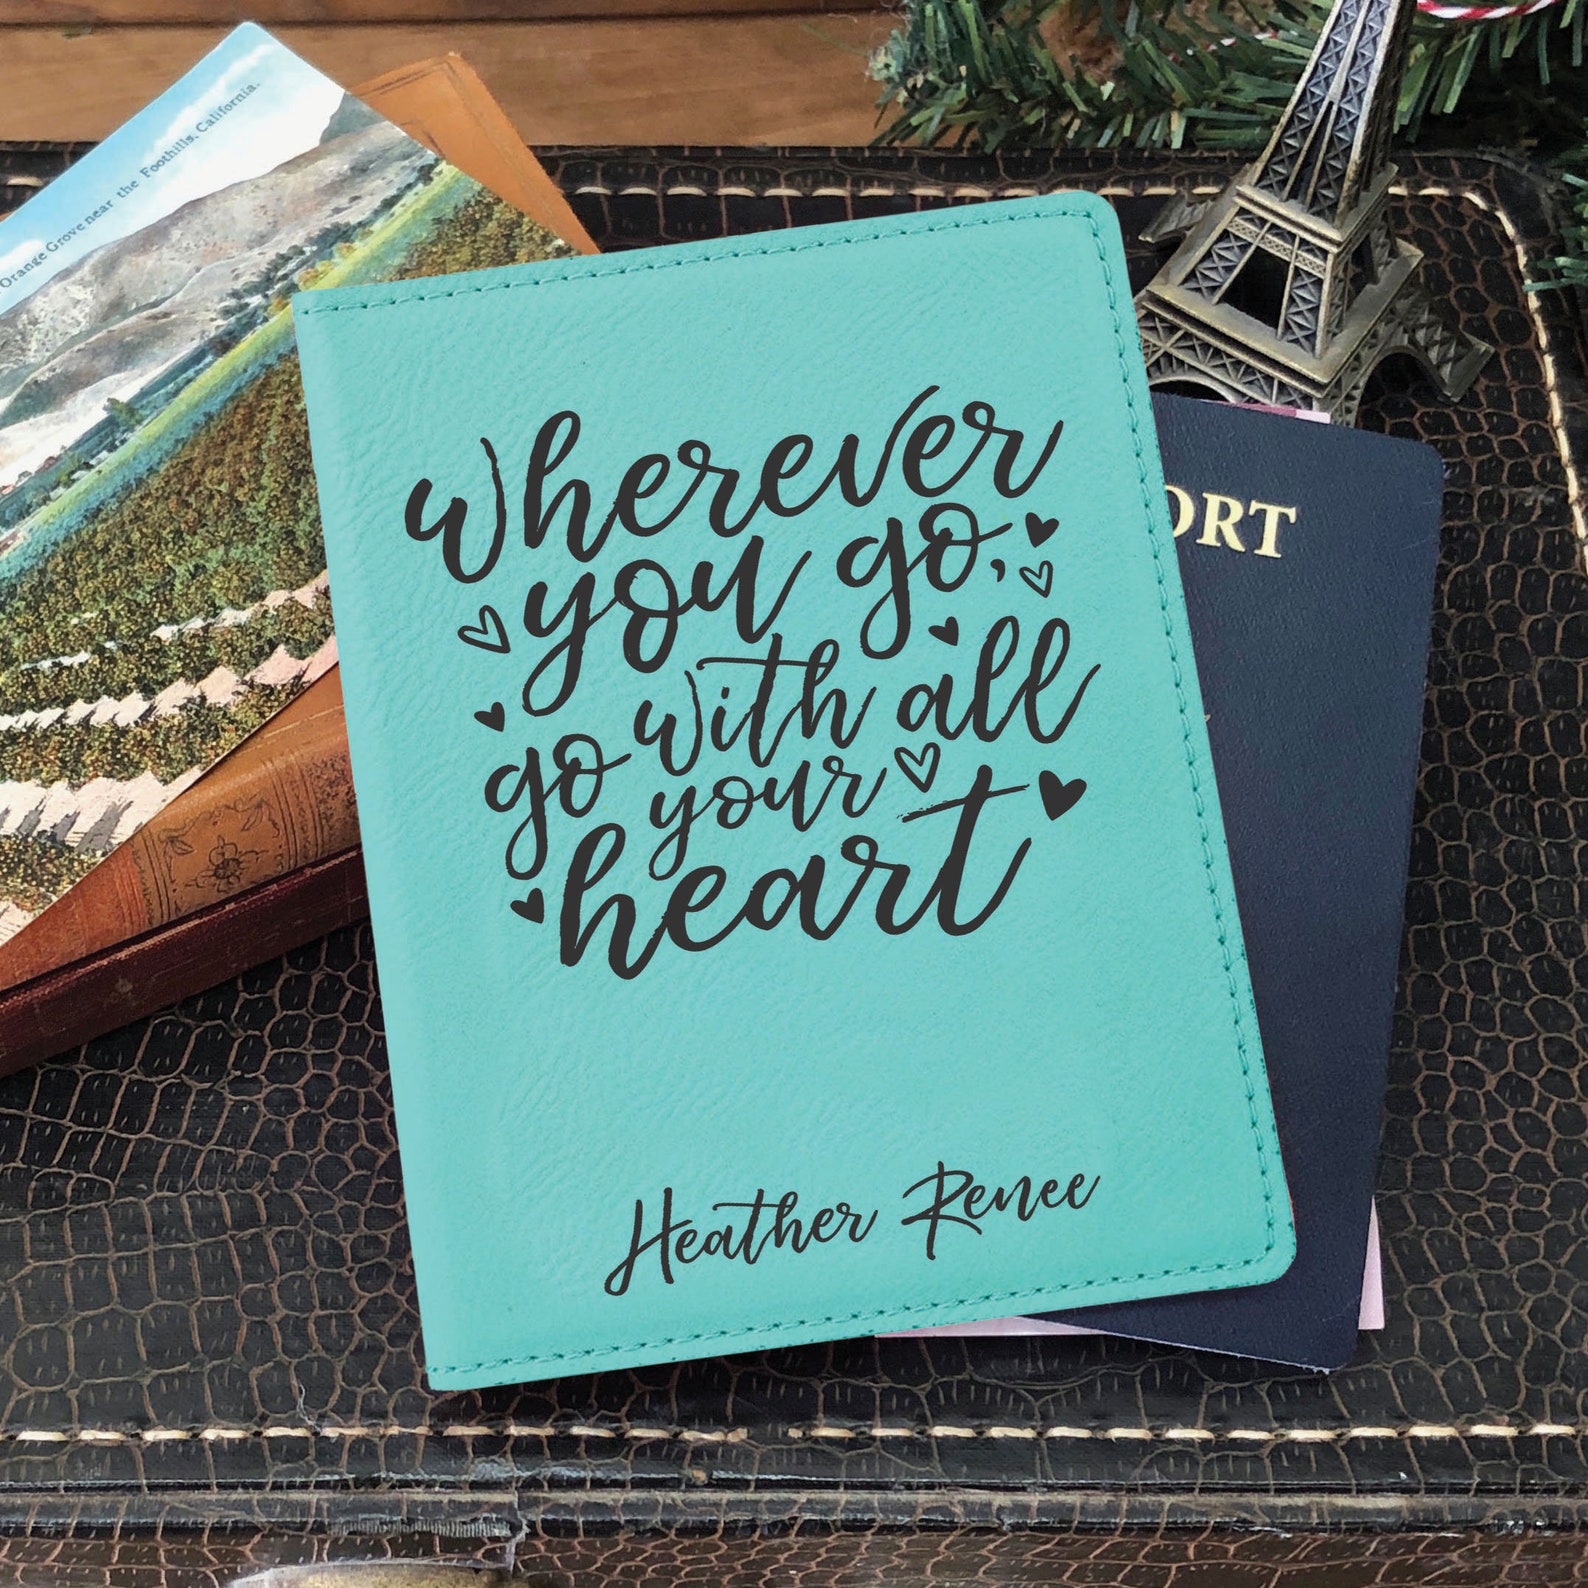 Orange Grove near the Foothills, California.
Wherever
you go,
go with all
your
heart
Heather Renee
ORT